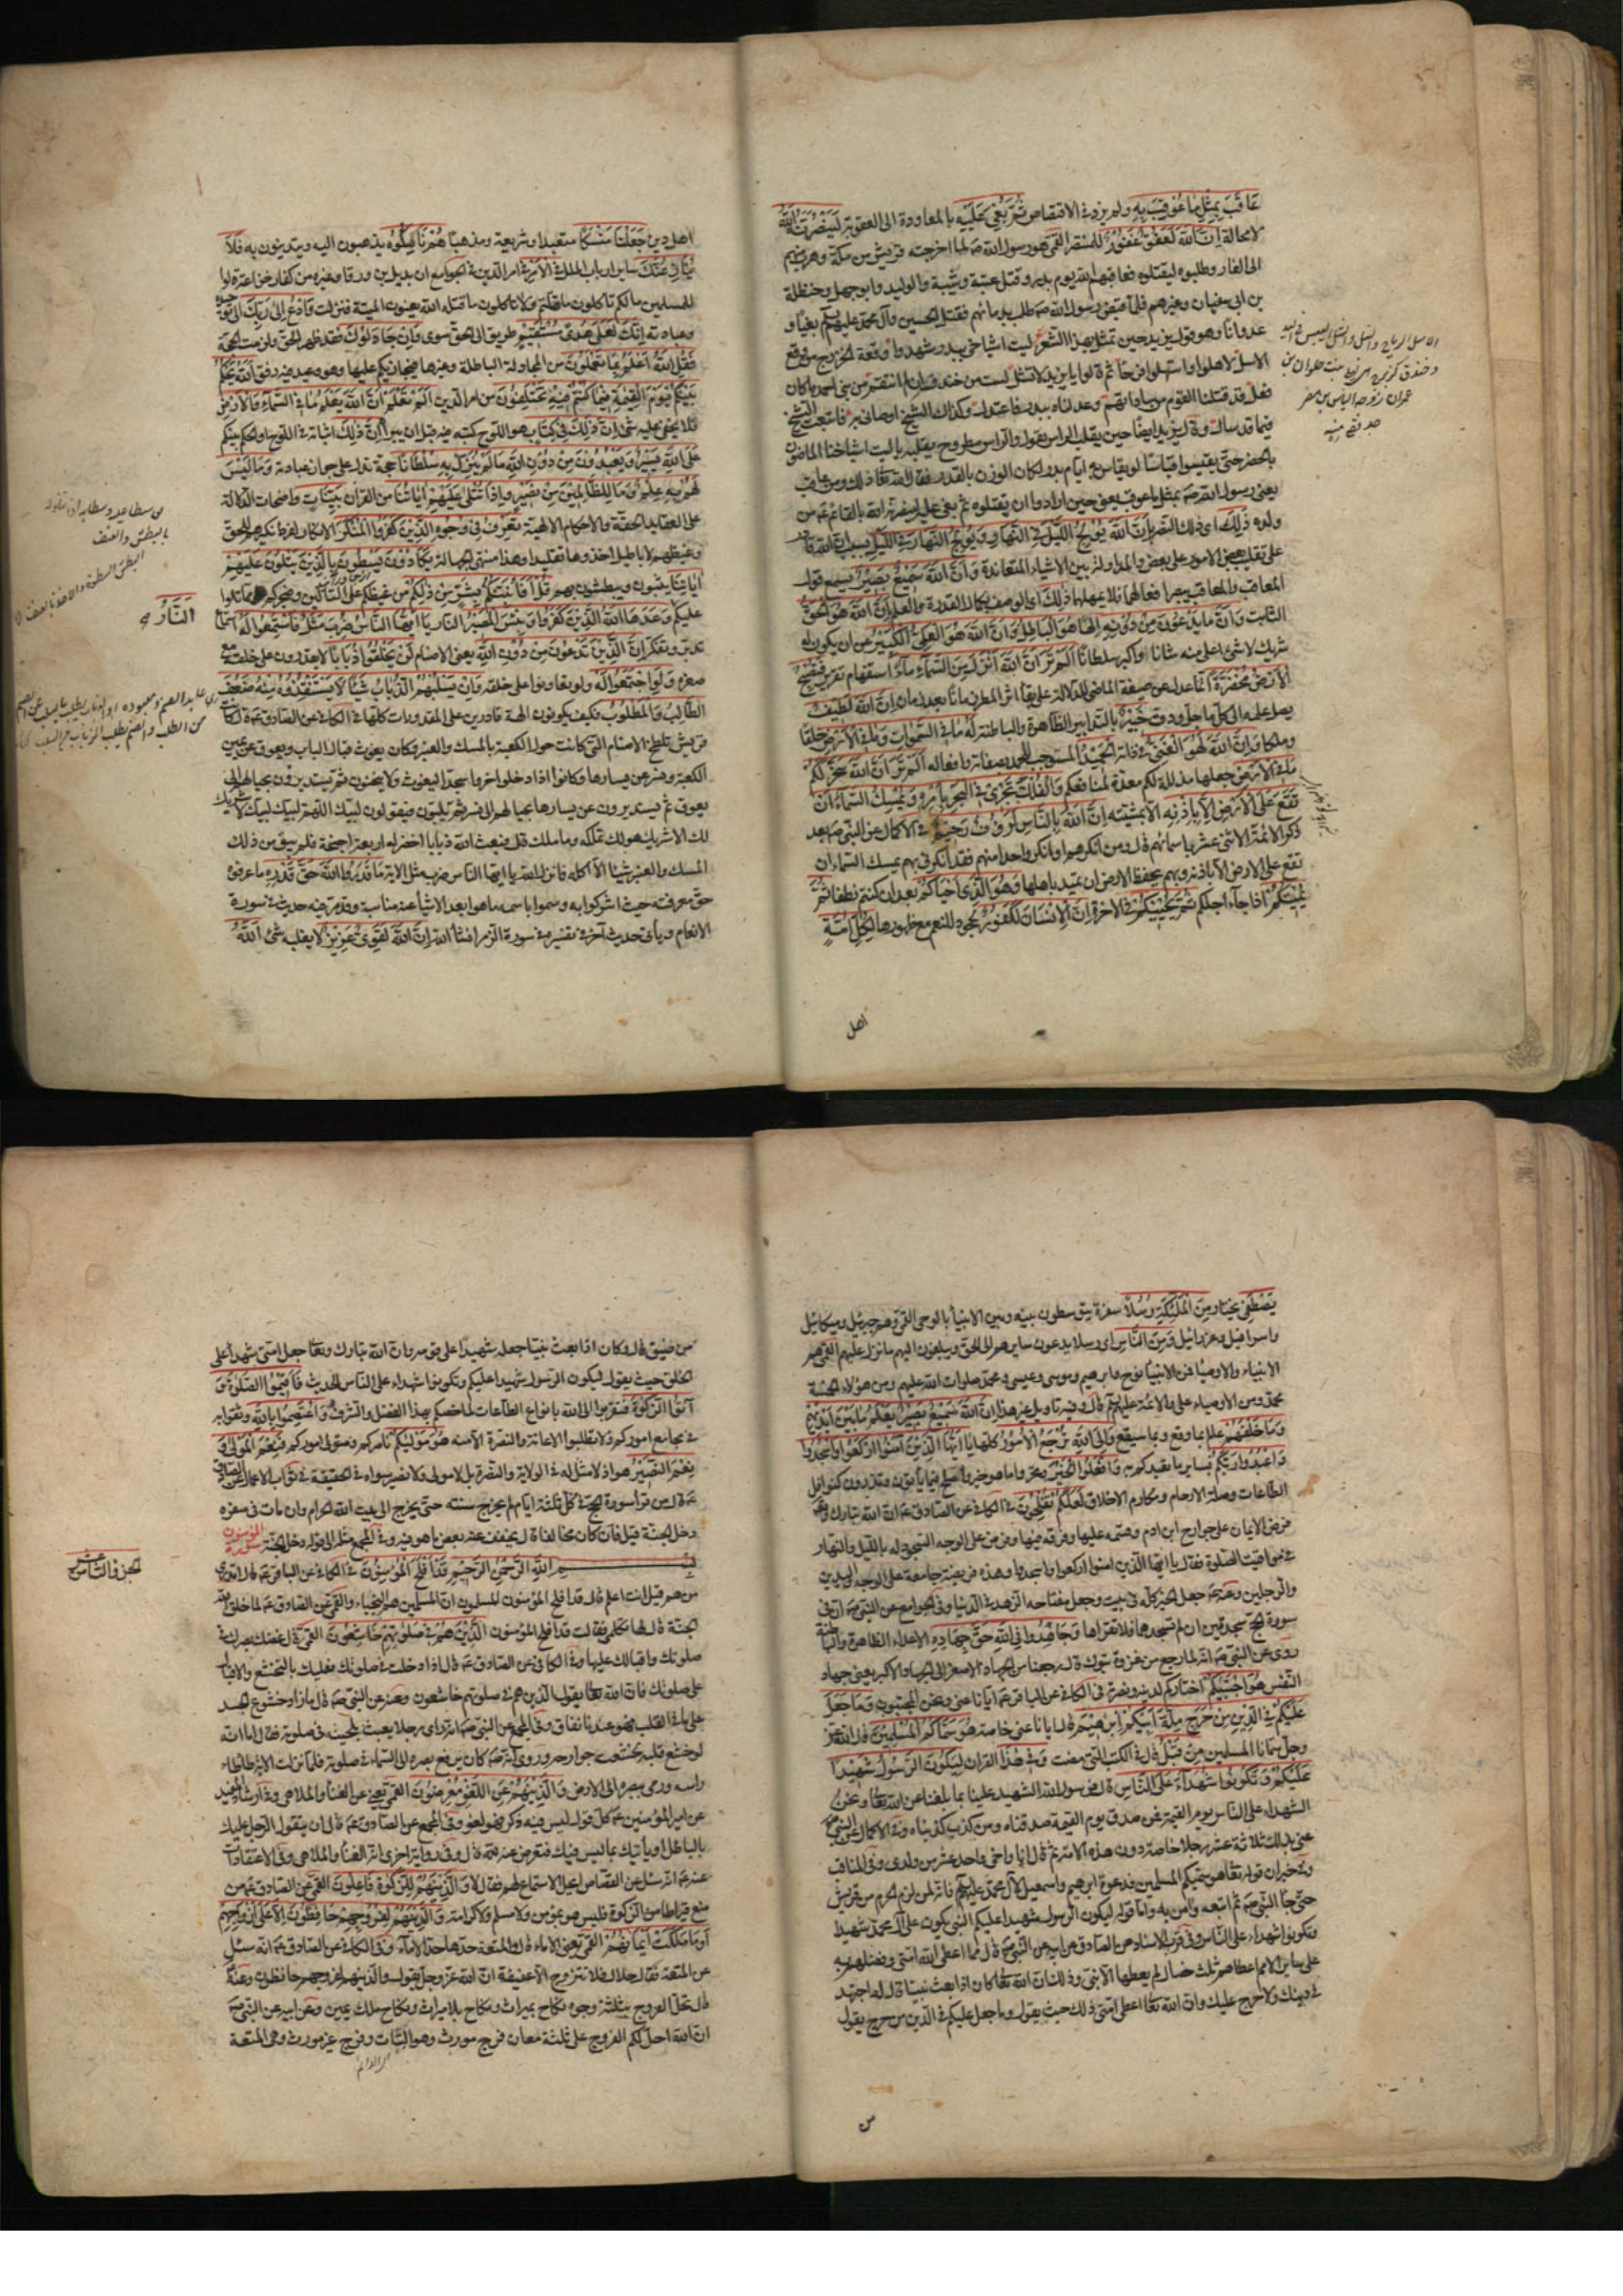 عَاقَبَ بِمِثْلِ مَا عُوقِبَ بِهِ ولم يزد في الاقتصاص ثُمَّ بُغِيَ عَلَيْهِ بالمعاودة الى العقوبة لَيَنْصُرَنَّهُ اللَّهُ
لا محالة اِنَّ اللَّهَ لَعَفُوٌّ غَفُورٌ للمنتصر القمي هو رسول الله صلما اخرجته قريش من مكة وهرب منهم
الى الغار وطلبوه ليقتلوه فعاقبهم الله يوم بدر وقتل عتبة وشيبة والوليد وابو جهل وحنظلة
بن ابي سفيان وغيرهم فلما قبض رسول الله صطلب بدمائهم فقتل الحسين وآل محمد عليهم بغيا و
عدوانا وهو قول يزيد حين تمثل بهذا الشعر ليت اشياخي ببدر شهدوا وقعة الخزرج مع وقع
الاسل لاهلوا واستهلوا فرحا ثم قالوا يا يزيد لا تشل لست من خندف ان لم انتقم من بني احمد ما كان
فعل قد قتلنا القوم من ساداتهم وعدلناه ببدر فاعتدل وكذاك الشيخ اوصاني به فاتبعت الشيخ
فيما قد سأل وقال يزيد ايضا حين يقلب الراس يقول والراس مطروح يقلبه يا ليت اشياخنا الماضون
بالحضر حتى يقيسوا قياسا لو يقاس به ايام بدر لكان الوزن بالقدر فقال الله تعا ذلك ومن عاقب
يعني رسول الله صبمثل ما عوقب يعني حين ارادوا ان يقتلوه ثم بغي عليه لينصرنه الله بالقائم عم من
ولده ذَلِكَ اى ذلك النصر بِأَنَّ اللَّهَ يُولِجُ اللَّيْلَ فِي النَّهَارِ وَيُولِجُ النَّهَارَ فِي اللَّيْلِ بسبب ان الله قادر
على تقليب بعض الامور على بعض والمداولة بين الاشياء المتعاندة وَأَنَّ اللَّهَ سَمِيعٌ بَصِيرٌ يسمع قول
المعاقب والمعاقب يبصر افعالهما فلا يهملهما ذَلِكَ اى الوصف بكمال القدرة والعلم بِأَنَّ اللَّهَ هُوَ الْحَقُّ
الثابت وَأَنَّ مَا يَدْعُونَ مِنْ دُونِهِ الها هُوَ الْبَاطِلُ وَأَنَّ اللَّهَ هُوَ الْعَلِيُّ الْكَبِيرُ عن ان يكون له
شريك لا شئ اعلى منه شانا واكبر سلطانا أَلَمْ تَرَ أَنَّ اللَّهَ أَنْزَلَ مِنَ السَّمَاءِ مَاءً استفهام تقرير فَتُصْبِحُ
الْأَرْضُ مُخْضَرَّةً انما عدل عن صيغة الماضي للدلالة على بقاء اثر المطر زمانا بعد زمان إِنَّ اللَّهَ لَطِيفٌ
يصل علمه الى كل ما جل ودق خَبِيرٌ بالتدابير الظاهرة والباطنة لَهُ مَا فِي السَّمَوَاتِ وَمَا فِي الْأَرْضِ خلقا
وملكا وَإِنَّ اللَّهَ لَهُوَ الْغَنِيُّ في ذاته الْحَمِيدُ المستوجب للحمد بصفاته وافعاله أَلَمْ تَرَ أَنَّ اللَّهَ سَخَّرَ لَكُمْ
مَا فِي الْأَرْضِ جعلها مذللة لكم معدة لمنافعكم وَالْفُلْكَ تَجْرِي فِي الْبَحْرِ بِأَمْرِهِ وَيُمْسِكُ السَّمَاءَ أَنْ
تَقَعَ عَلَى الْأَرْضِ إِلَّا بِإِذْنِهِ الا بمشيته إِنَّ اللَّهَ بِالنَّاسِ لَرَؤُفٌ رَحِيمٌ في الاكمال عن النبي صبعد
ذكر الائمة الاثني عشر باسمائهم قال ومن انكرهم او انكر واحدا منهم فقد انكرني بهم يمسك السماء ان
تقع على الارض الا باذنه وبهم يحفظ الارض ان تميد باهلها وَهُوَ الَّذِي أَحْيَاكُمْ بعد ان كنتم نطفا ثُمَّ
يُمِيتُكُمْ اذا جاء اجلكم ثُمَّ يُحْيِيكُمْ في الاخرة إِنَّ الْإِنْسَانَ لَكَفُورٌ لجحود للنعم مع ظهورها لِكُلِّ أُمَّةٍ
اهل
اهل دين جَعَلْنَا مَنْسَكًا متعبدا وشريعة ومذهبا هُمْ نَاسِكُوهُ يذهبون اليه ويتدينون به فَلَا
يُنَازِعُنَّكَ ساير ارباب الملل فِي الْأَمْرِ في امر الدين في الجوامع ان بديل بن ورقا وغيره من كفار خزاعة قالوا
للمسلمين مالكم تاكلون ما قتلتم ولا تاكلون ما قتله الله يعنون الميتة فنزلت وَادْعُ إِلَى رَبِّكَ الى توحيده
وعبادته إِنَّكَ لَعَلَى هُدًى مُسْتَقِيمٍ طريق الى الحق سوى وَإِنْ جَادَلُوكَ فقد ظهر الحق ولزمت الحجة
فَقُلِ اللَّهُ أَعْلَمُ بِمَا تَعْمَلُونَ من المجادلة الباطلة وغيرها فيجازيكم عليها وهو وعيد فيه رفق اللَّهُ يَحْكُمُ
بَيْنَكُمْ يَوْمَ الْقِيَمَةِ فِيمَا كُنْتُمْ فِيهِ تَخْتَلِفُونَ من امر الدين أَلَمْ تَعْلَمْ أَنَّ اللَّهَ يَعْلَمُ مَا فِي السَّمَاءِ وَالْأَرْضِ
فلا يخفى عليه شئ إِنَّ ذَلِكَ فِي كِتَابٍ هو اللوح كتبه فيه قبل ان يبرأ إِنَّ ذَلِكَ اثباته في اللوح او الحكم بينكم
عَلَى اللَّهِ يَسِيرٌ وَيَعْبُدُونَ مِنْ دُونِ اللَّهِ مَا لَمْ يُنَزِّلْ بِهِ سُلْطَانًا حجة تدل على جواز عبادته وَمَا لَيْسَ
لَهُمْ بِهِ عِلْمٌ وَمَا لِلظَّالِمِينَ مِنْ نَصِيرٍ وَإِذَا تُتْلَى عَلَيْهِمْ آيَاتُنَا من القرآن بَيِّنَاتٍ واضحات الدلالة
على العقايد الحقة والاحكام الالهية تَعْرِفُ فِي وُجُوهِ الَّذِينَ كَفَرُوا الْمُنْكَرَ الانكار لفرط نكيرهم للحق
وغيظهم لاباطيل اخذوها تقليدا وهذا منتهى الجهالة يَكَادُونَ يَسْطُونَ بِالَّذِينَ يَتْلُونَ عَلَيْهِمْ
آيَاتِنَا يثبون ويبطشون بهم قُلْ أَفَأُنَبِّئُكُمْ بِشَرٍّ مِنْ ذَلِكُمْ من غيظكم على التالين وضجركم مما تلوا
عليكم وَعَدَهَا اللَّهُ الَّذِينَ كَفَرُوا وَبِئْسَ الْمَصِيرُ النار يَا أَيُّهَا النَّاسُ ضُرِبَ مَثَلٌ فَاسْتَمِعُوا لَهُ استماع
تدبر وتفكر إِنَّ الَّذِينَ تَدْعُونَ مِنْ دُونِ اللَّهِ يعنى الاصنام لَنْ يَخْلُقُوا ذُبَابًا لا يقدرون على خلقه مع
صغره وَلَوِ اجْتَمَعُوا لَهُ ولو تعاونوا على خلقه وَإِنْ يَسْلُبْهُمُ الذُّبَابُ شَيْئًا لَا يَسْتَنْقِذُوهُ مِنْهُ ضَعُفَ
الطَّالِبُ وَالْمَطْلُوبُ فكيف يكونون الهة قادرين على المقدورات كلها في الكافي عن الصادق عم قال كانت
قريش تلطخ الاصنام التي كانت حول الكعبة بالمسك والعنبر وكان يغوث قبال الباب ويعوق عن يمين
الكعبة ونسر عن يسارها وكانوا اذا دخلوا خروا سجدا ليغوث ولا ينحنون ثم يستديرون بحيالهم الى
يعوق ثم يستديرون عن يسارها بحيالهم الى نسر ثم يلبون فيقولون لبيك اللهم لبيك لبيك لا شريك
لك الا شريك هو لك تملكه وما ملك قال فبعث الله ذبابا اخضر له اربعة اجنحة فلم يبق من ذلك
المسك والعنبر شيئا الا اكله فانزل الله يا ايها الناس ضرب مثل الاية مَا قَدَرُوا اللَّهَ حَقَّ قَدْرِهِ ما عرفوه
حق معرفته حيث اشركوا به وسموا باسمه ما هو ابعد الاشياء عنه مناسبة وقد مر فيه حديث في سورة
الانعام ويأتي حديث آخر في تفسيره في سورة الزمر انشأ الله إِنَّ اللَّهَ لَقَوِيٌّ عَزِيزٌ لا يغلبه شئ اللَّهُ
النَّارُ
يَصْطَفِي يختار مِنَ الْمَلَئِكَةِ رُسُلًا سفرة يتوسطون بينه وبين الانبيأ بالوحى القمي وهم جبرئيل وميكائيل
واسرافيل وعزرائيل وَمِنَ النَّاسِ اى رسلا يدعون سايرهم الى الحق ويبلغون اليهم ما نزل عليهم القمي هم
الانبياء والاوصيا فمن الانبيأ نوح وابرهيم وموسى وعيسى ومحمد صلوات الله عليهم ومن هؤلاء الخمسة
محمد ومن الاوصياء على والائمة عليهم قال وفيه تاويل غير هذا إِنَّ اللَّهَ سَمِيعٌ بَصِيرٌ يَعْلَمُ مَا بَيْنَ أَيْدِيهِمْ
وَمَا خَلْفَهُمْ عالم بما وقع وبما سيقع وَإِلَى اللَّهِ تُرْجَعُ الْأُمُورُ كلها يَا أَيُّهَا الَّذِينَ آمَنُوا ارْكَعُوا وَاسْجُدُوا
وَاعْبُدُوا رَبَّكُمْ بساير ما تعبدكم به وَافْعَلُوا الْخَيْرَ وتحروا ما هو خير واصلح فيما تأتون وتذرون كنوافل
الطاعات وصلة الارحام ومكارم الاخلاق لَعَلَّكُمْ تُفْلِحُونَ في الكافي عن الصادق عم ان الله تبارك وتعا
فرض الايمان على جوارح ابن ادم وقسمه عليها وفرقه فيها وفرض على الوجه السجود له بالليل والنهار
في مواقيت الصلوة فقال يا ايها الذين امنوا اركعوا واسجدوا وهذه فريضة جامعة على الوجه واليدين
والرجلين وعنه عم جعل الخير كله في بيت وجعل مفتاحه الزهد في الدنيا وفي الجوامع عن النبي صان في
سورة الحج سجدتين ان لم تسجدهما فلا تقراها وَجَاهِدُوا فِي اللَّهِ حَقَّ جِهَادِهِ الاعداء الظاهرة والباطنة
روى عن النبي صانه لما رجع من غزوة تبوك قال رجعنا من الجهاد الاصغر الى الجهاد الاكبر يعنى جهاد
النفس هُوَ اجْتَبَيكُمْ اختاركم لدينه ونصرته في الكافي عن الباقر عم ايانا عنى ونحن المجتبون وَمَا جَعَلَ
عَلَيْكُمْ فِي الدِّينِ مِنْ حَرَجٍ مِلَّةَ أَبِيكُمْ إِبْرَهِيمَ قال ايانا عنى خاصة هُوَ سَمَّاكُمُ الْمُسْلِمِينَ قال الله عز
وجل سمانا المسلمين مِنْ قَبْلُ قال في الكتب التي مضت وَفِي هَذَا القرآن لِيَكُونَ الرَّسُولُ شَهِيدًا
عَلَيْكُمْ وَتَكُونُوا شُهَدَاءَ عَلَى النَّاسِ قال فرسول الله الشهيد علينا بما بلغنا عن الله تعا ونحن
الشهداء على الناس يوم القيمة فمن صدق يوم القيمة صدقناه ومن كذب كذبناه وفي الاكمال عن النبي ص
عنى بذلك ثلاثة عشر رجلا خاصة دون هذه الامة ثم قال انا واخي واحد عشر من ولدي وفي المناقب
في خبر ان قوله تعا هو سميكم المسلمين فدعوة ابرهيم واسمعيل لآل محمد عليهم فانه لمن لزم الحرم من قريش
حتى جا النبي صثم اتبعه وامن به واما قوله ليكون الرسول شهيدا عليكم النبي يكون على آل محمد شهيدا
وتكونوا شهداء على الناس وفي قرب الاسناد عن الصادق عن ابيه عن النبي صقال مما اعطى الله امتي وفضلهم به
على ساير الامم اعطاهم ثلث خصال لم يعطها الا نبي وذلك ان الله تعا كان اذا بعث نبيا قال له اجتهد
في دينك ولا حرج عليك وان الله تعا اعطى امتي ذلك حيث يقول وما جعل عليكم في الدين من حرج يقول
من
من ضيق قال وكان اذا بعث نبيا جعله شهيدا على قومه وان الله تبارك وتعا جعل امتي شهدأ على
الخلق حيث يقول ليكون الرسول شهيدا عليكم وتكونوا شهداء على الناس الحديث فَأَقِيمُوا الصَّلَوةَ وَ
آتُوا الزَّكَوةَ فتقربوا الى الله بانواع الطاعات لما خصكم بهذا الفضل والشرف وَاعْتَصِمُوا بِاللَّهِ وثقوا به
في مجامع اموركم ولا تطلبوا الاعانة والنصرة الا منه هُوَ مَوْلَيكُمْ ناصركم ومتولى اموركم فَنِعْمَ الْمَوْلَى وَ
نِعْمَ النَّصِيرُ هو اذ لا مثل له في الولاية والنصرة بل لا مولى ولا نصير سواه في الحقيقة في ثواب الاعمال عن الصادق
عم قال من قرأ سورة الحج في كل ثلثة ايام لم يخرج سنته حتى يخرج الى بيت الله الحرام وان مات في سفره
دخل الجنة قيل فان كان مخالفا قال يخفف عنه بعض ما هو فيه وفي المجمع مثله الى قوله دخل الجنة سورة المؤمنون
بسم اللَّهِ الرَّحْمَنِ الرَّحِيمِ قَدْ أَفْلَحَ الْمُؤْمِنُونَ في الكافي عن الباقر عم قال اتدري
من هم قيل انت اعلم قال قد افلح المؤمنون المسلمون ان المسلمين هم النجباء والقمي عن الصادق عم لما خلق الله
الجنة قال لها تكلمي فقالت قد افلح المؤمنون الَّذِينَ هُمْ فِي صَلَوتِهِمْ خَاشِعُونَ القمي قال غضك بصرك في
صلوتك واقبالك عليها وفي الكافي عن الصادق عم قال اذا دخلت في صلوتك فعليك بالتخشع والاقبال
على صلوتك فان الله تعا يقول الذين هم في صلوتهم خاشعون وعنه عن النبي صقال ما زاد خشوع الجسد
على ما في القلب فهو عندنا نفاق وفي المجمع عن النبي صانه راى رجلا يعبث بلحيته في صلوته فقال اما انه
لو خشع قلبه لخشعت جوارحه وروى انه صكان يرفع بصره الى السماء في صلوته فلما نزلت الاية طأطاء
راسه ورمى ببصره الى الارض وَالَّذِينَ هُمْ عَنِ اللَّغْوِ مُعْرِضُونَ القمي يعنى عن الغنأ والملاهى وفي ارشاد المفيد
عن امير المؤمنين عم كل قول ليس فيه ذكر فهو لغو وفي المجمع عن الصادق عم قال ان يتقول الرجل عليك
بالباطل او يأتيك بما ليس فيك فتعرض عنه لله قال وفي رواية اخرى انه الغنأ والملاهى وفي الاعتقادات
عنه عم انه سئل عن القصاص ايحل الاستماع لهم فقال لا وَالَّذِينَ هُمْ لِلزَّكَوةِ فَاعِلُونَ القمي عن الصادق عم من
منع قيراطا من الزكوة فليس هو بمؤمن ولا مسلم ولا كرامة وَالَّذِينَ هُمْ لِفُرُوجِهِمْ حَافِظُونَ إِلَّا عَلَى أَزْوَاجِهِمْ
أَوْ مَا مَلَكَتْ أَيْمَانُهُمْ القمي يعنى الاماء قال والمتعة حدها حد الاماء وفي الكافي عن الصادق عم انه سئل
عن المتعة فقال حلال فلا تتزوج الا عفيفة ان الله عز وجل يقول والذين هم لفروجهم حافظون وعنه
قال تحل الفروج بثلثة وجوه نكاح بميراث ونكاح بلا ميراث ونكاح ملك يمين وعن ابيه عن النبي ص
ان الله احل لكم الفروج على ثلثة معان فرج مورث وهو البتات وفرج غير مورث وهو المتعة
الجزو الثامن عشر